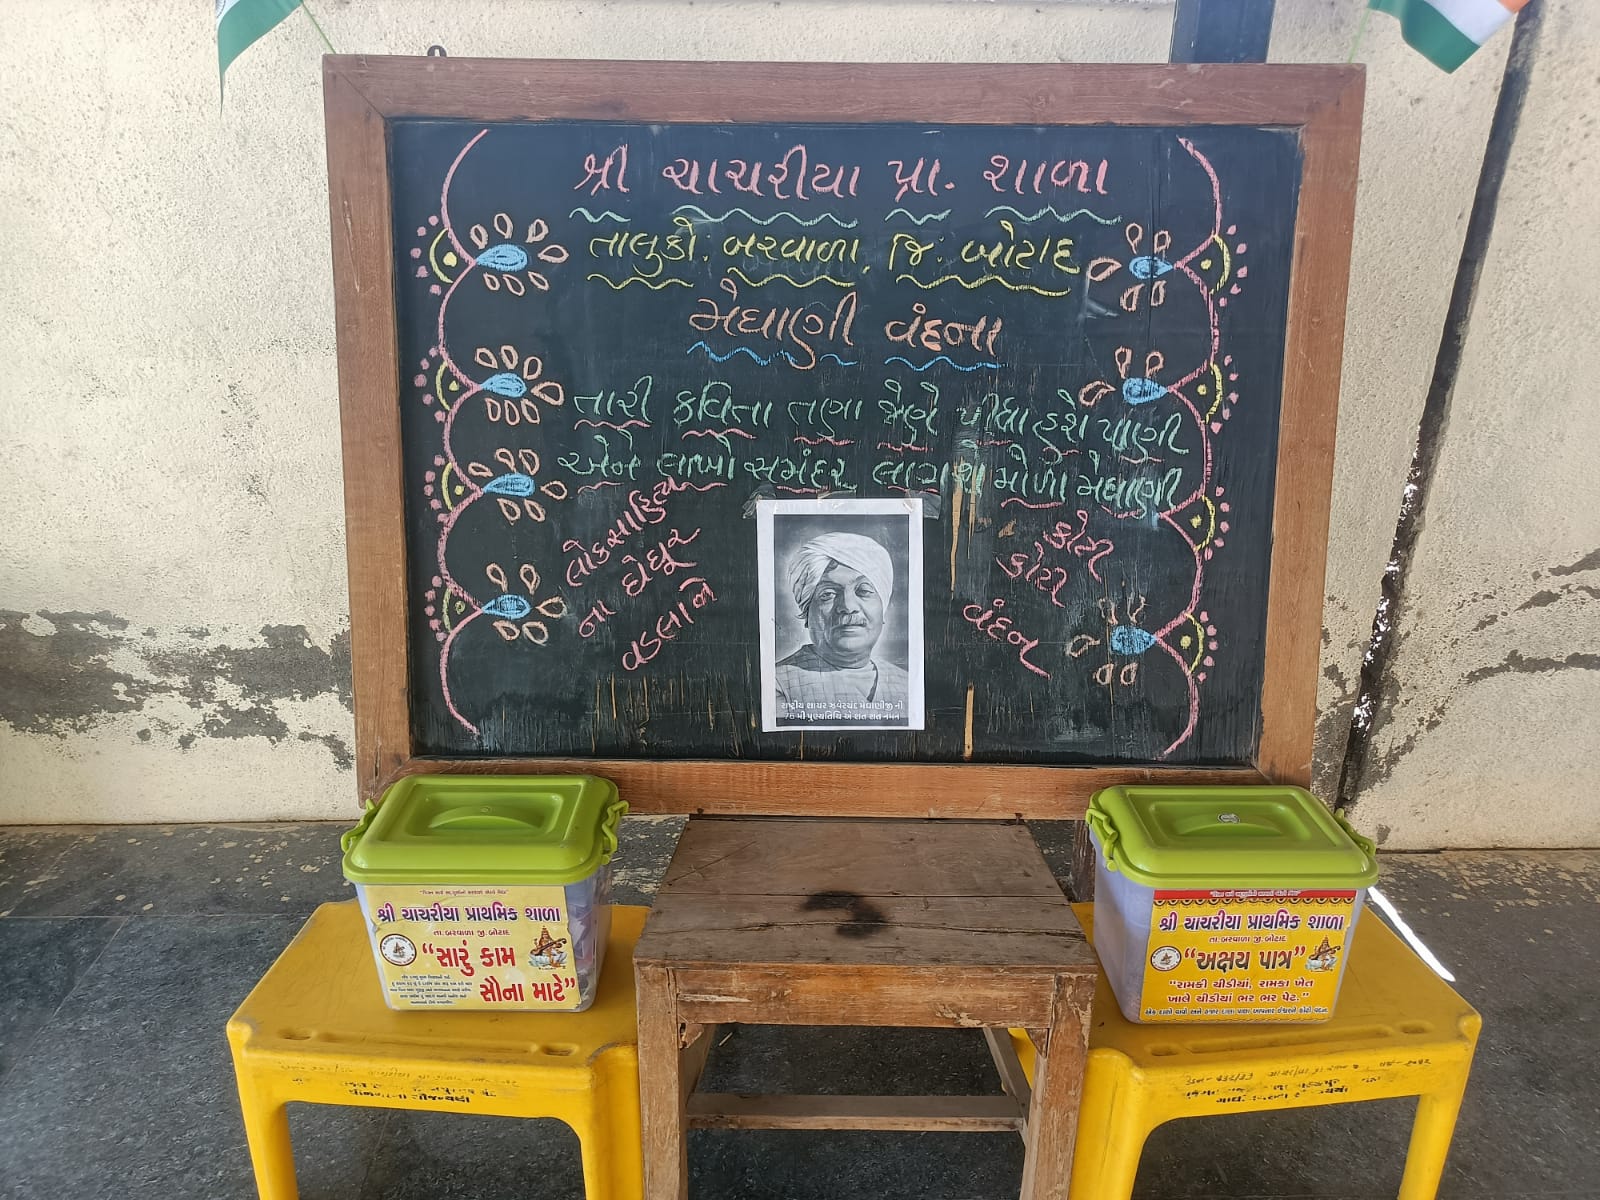 શ્રી ચાચરીયા પ્રા. શાળા
તાલુકો. બરવાળા, જિ. બોટાદ
મેઘાણી વંદના
તારી કવિતા તણા જેણે પીધા હશે પાણી
એને લાખો સમંદર લાગશે મોળા મેઘાણી
લોકસાહિત્ય
ના ઘેઘૂર
વડલાને
કોટી
કોટી
વંદન
રાષ્ટ્રીય શાયર ઝવેરચંદ મેઘાણીજી ની
76 મી પુણ્યતિથિ એ શત શત નમન
શ્રી ચાચરીયા પ્રાથમિક શાળા
તા. બરવાળા જી. બોટાદ
"સારું કામ
સૌના માટે"
શ્રી ચાચરીયા પ્રાથમિક શાળા
તા. બરવાળા જી. બોટાદ
"અક્ષય પાત્ર"
"રામકી ચીડીયાં, રામકા ખેત
ખાલે ચીડીયાં ભર ભર પેટ."